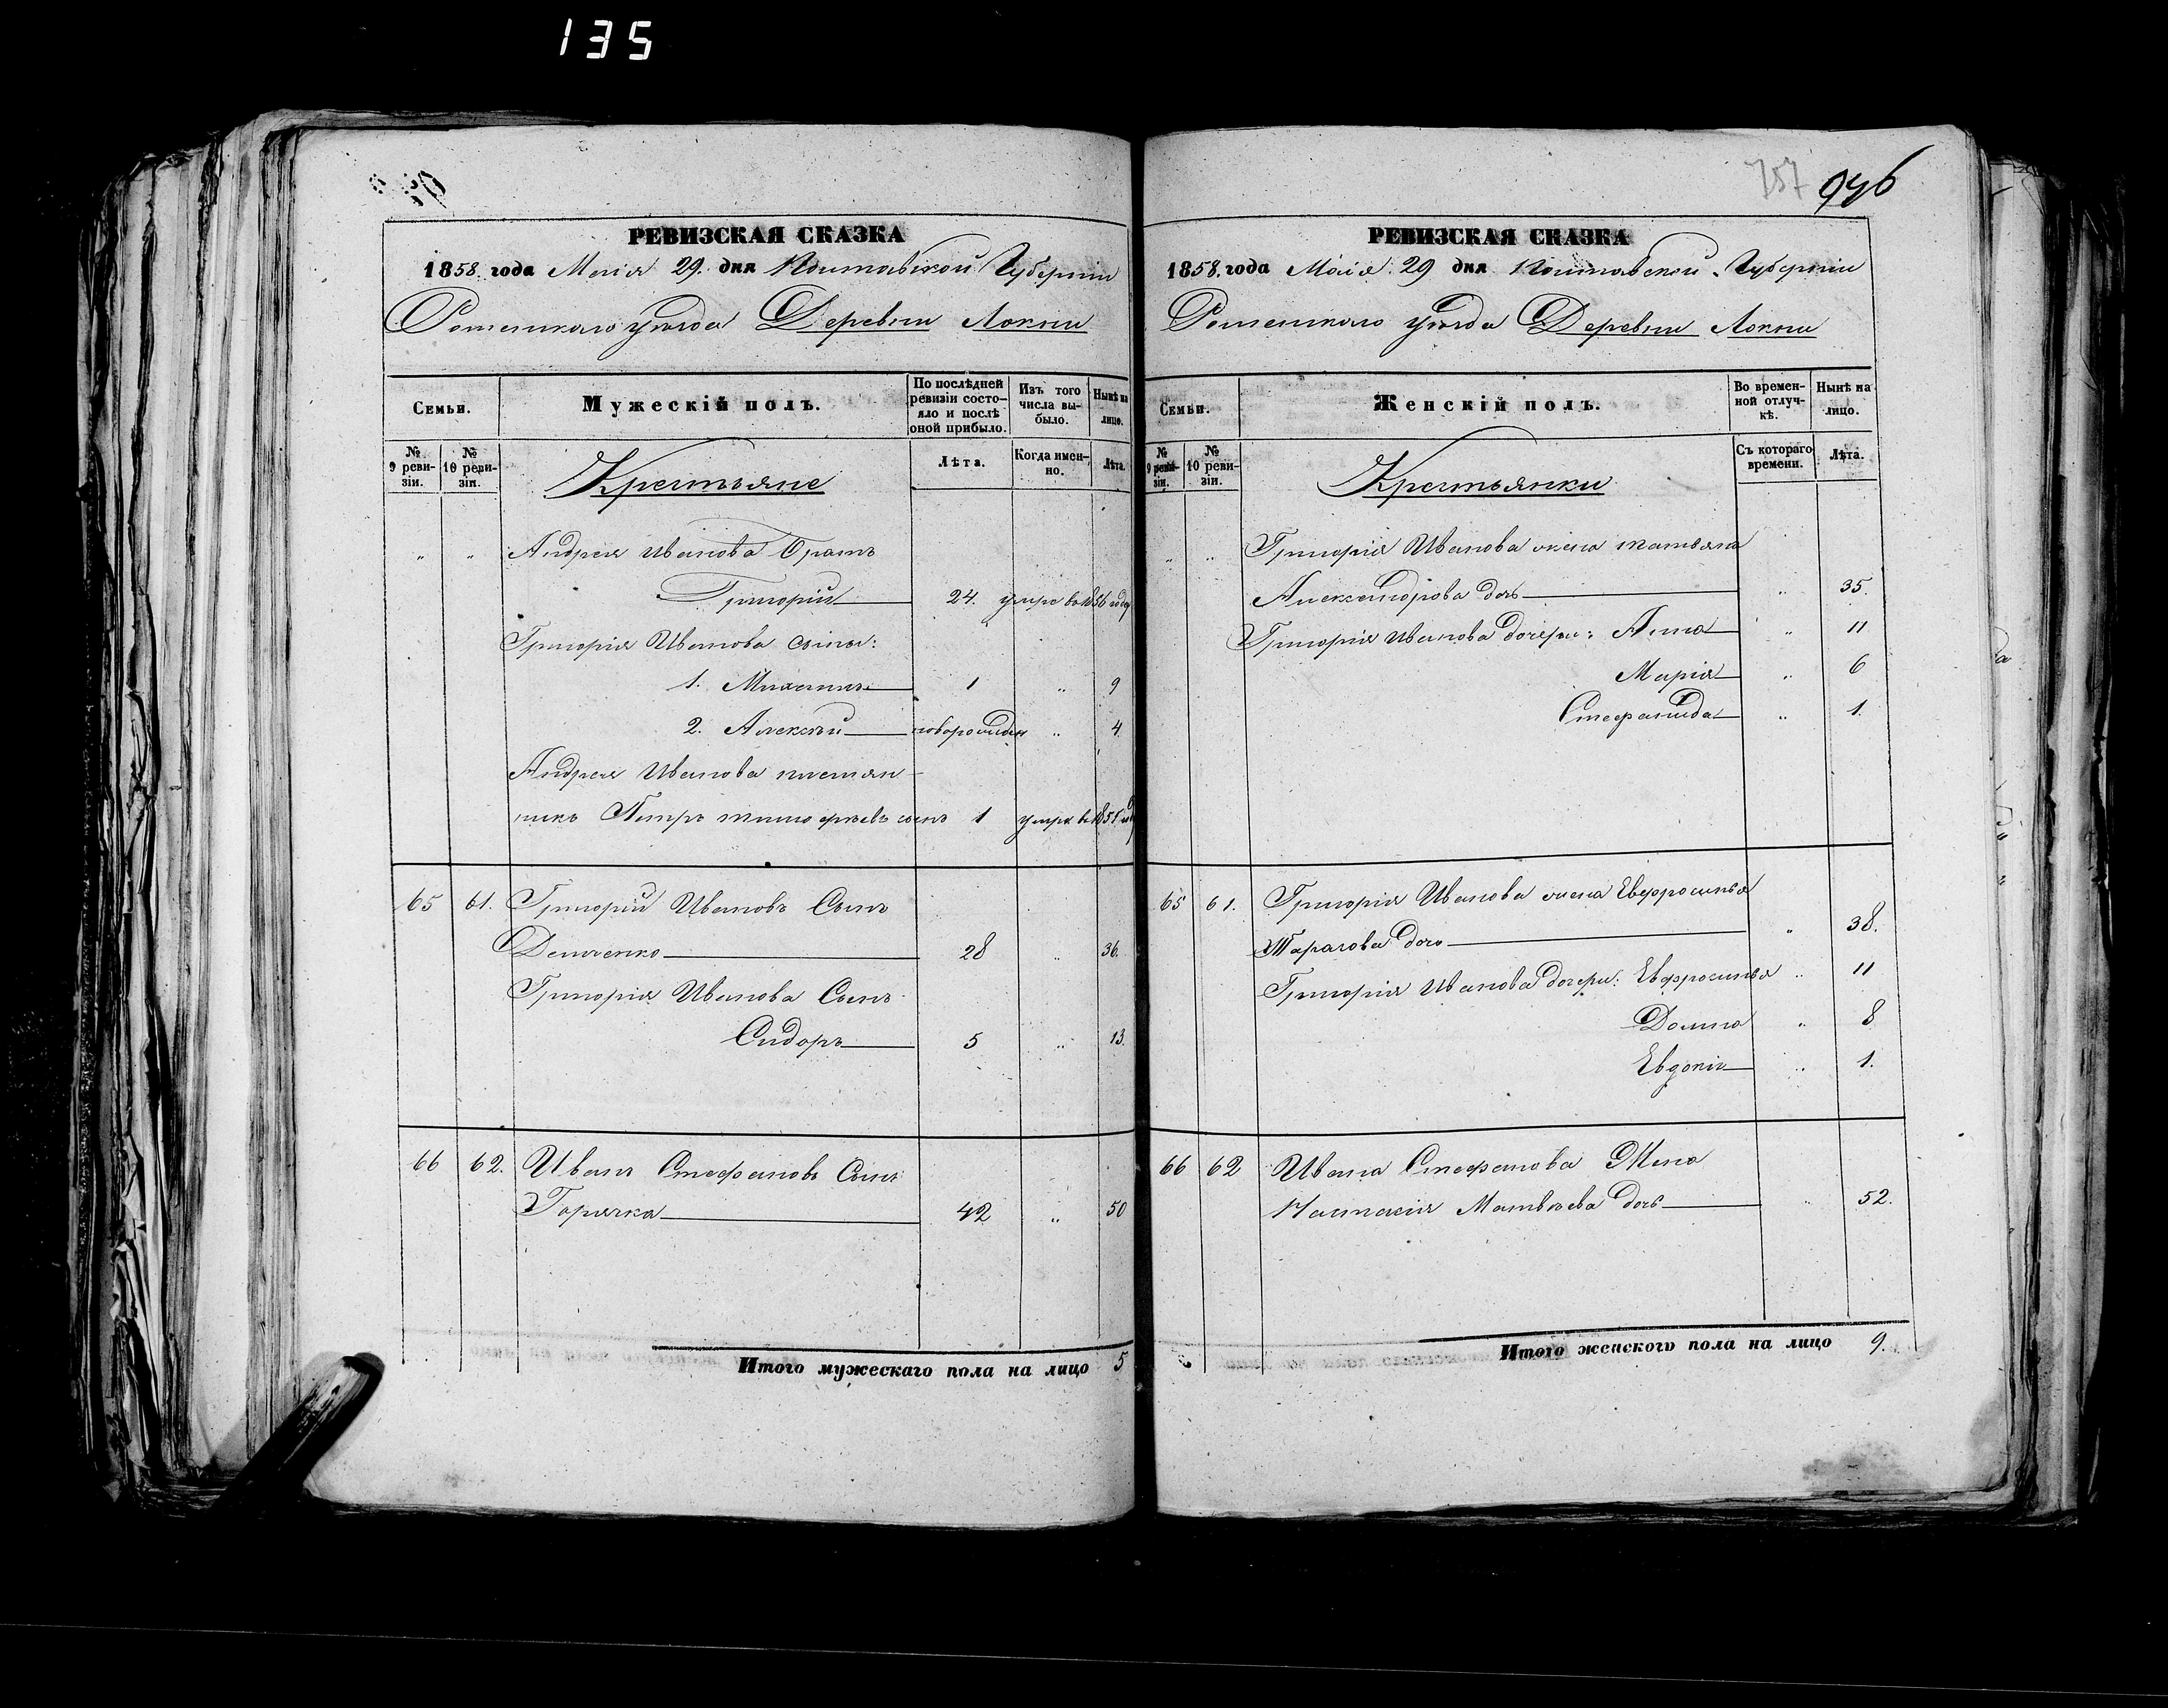 135
РЕВИЗСКАЯ СКАЗКА
1858. года Маія 29. дня Полтавской Губерніи
Роменскаго уѣзда Деревни Локни
Семьи.
Мужескій полъ.
По послѣдней ревизіи состояло и послѣ оной прибыло.
Изъ того числа выбыло.
Нынѣ на лицо.
№ 9 ревизіи.
№ 10 ревизіи.
Крестьяне
Лѣта.
Когда именно.
Лѣта.
" " Андрея Иванова братъ
Григорій 24. умре въ 1856 году
Григорія Иванова сыны:
1. Михаилъ 1 " 9
2. Алексѣй новорожден " 4
Андрея Иванова племян-
никъ Петръ Тимофѣевъ сынъ 1 умре въ
65 61. Григорій Ивановъ Сынъ
Демченко 28 " 36.
Григорія Иванова Сынъ
Сидоръ 5 " 13.
66 62. Иванъ Стефановъ Сынъ
Горячка 42 " 50
Итого мужескаго пола на лицо 5
757 946
РЕВИЗСКАЯ СКАЗКА
1858. года Маія 29 дня Полтавской Губерніи
Роменскаго уѣзда Деревни Локни
Семьи.
Женскій полъ.
Во временной отлучкѣ.
Нынѣ на лицо.
№ 9 ревизіи.
№ 10 ревизіи.
Крестьянки
Съ котораго времени.
Лѣта.
" " Григорія Иванова жена Татьяна
Александрова дочь " 35.
Григорія Иванова дочери: Анна " 11
Марія " 6
Стефанида " 1.
65 61. Григорія Иванова жена Евфросинья
Тарасова дочь " 38.
Григорія Иванова дочери: Евфросинья " 11
Домна " 8
Евдокія " 1.
66 62 Ивана Стефанова Жена
Настасія Матвѣева дочь " 52.
Итого женскаго пола на лицо 9.